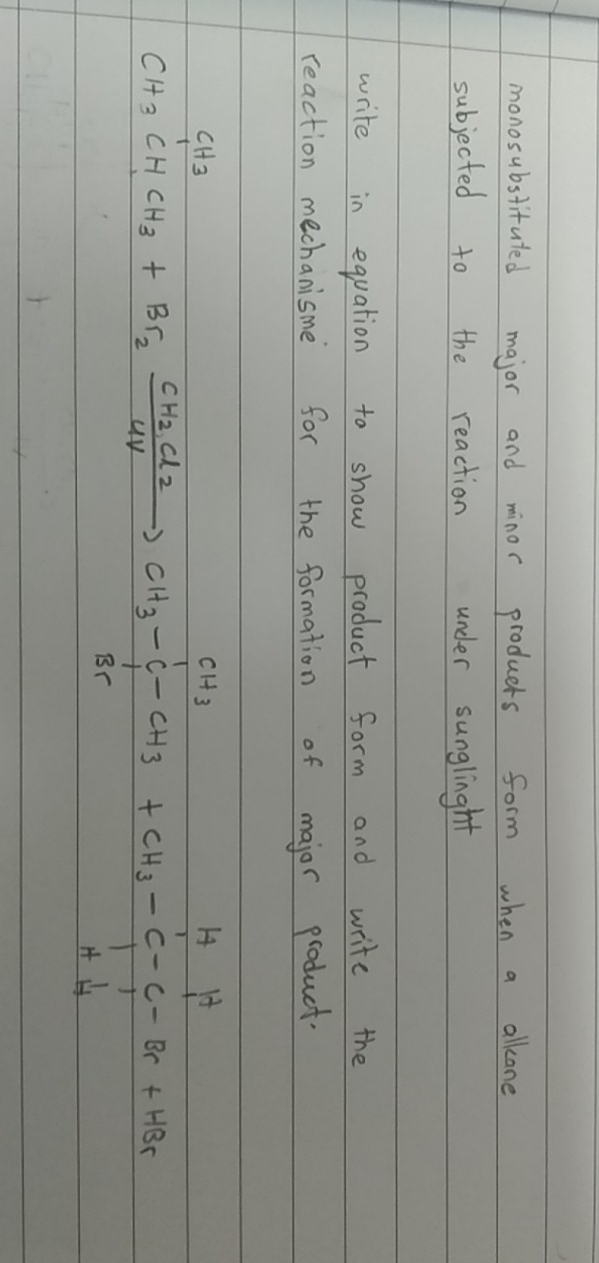 monosubstituted major and minor products form when a alkane
subjected to the reaction under sunglinght
write in equation to show product form and write the
reaction mechanisme for the formation of major product.
CH3 CH3 H H
CH3 CH CH3 + Br2 CH2Cl2 → CH3 – C – CH3 + CH3 – C – C – Br + HBr
UV Br H H